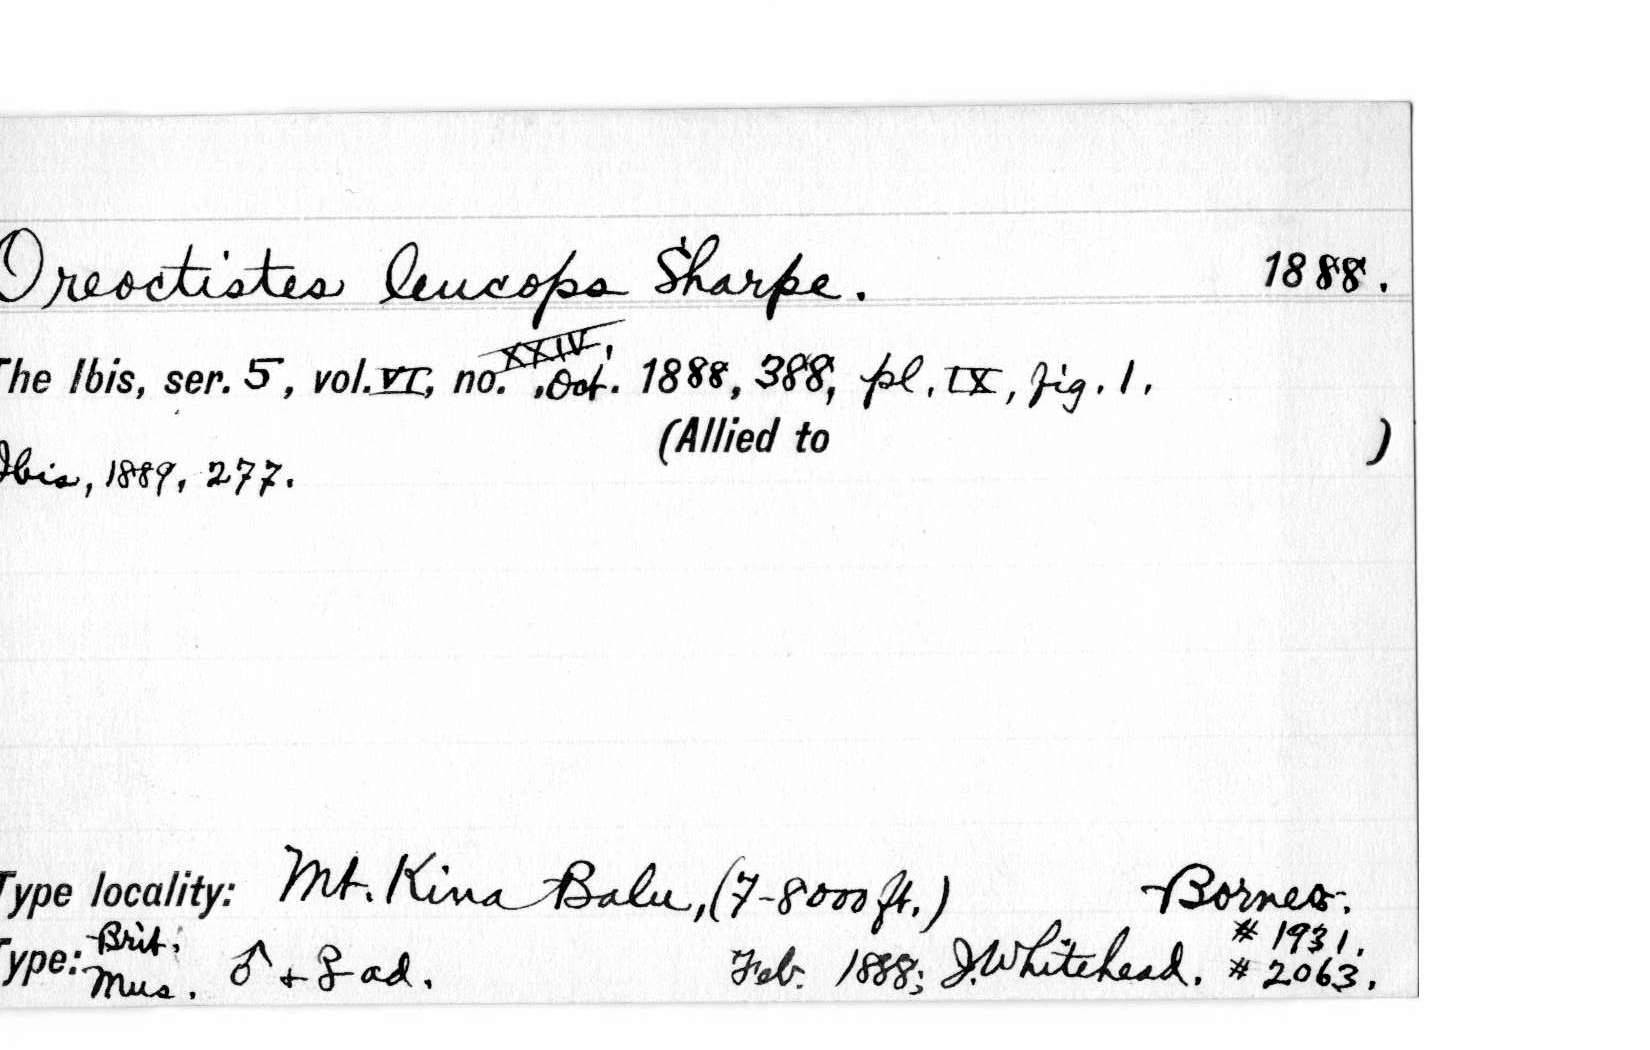 Oreoctistes leucops Sharpe. 1888.
The Ibis, ser. 5, vol. VI, no. XXIV, , Oct. 1888, 388, pl. IX, fig. 1.
(Allied to )
Ibis, 1889, 277.
Type locality: Mt. Kina Balu, (7-8000 ft.) Borneo.
Type: Brit. Mus. ♂ + ♀ ad. Feb. 1888; J. Whitehead. # 1931. # 2063.